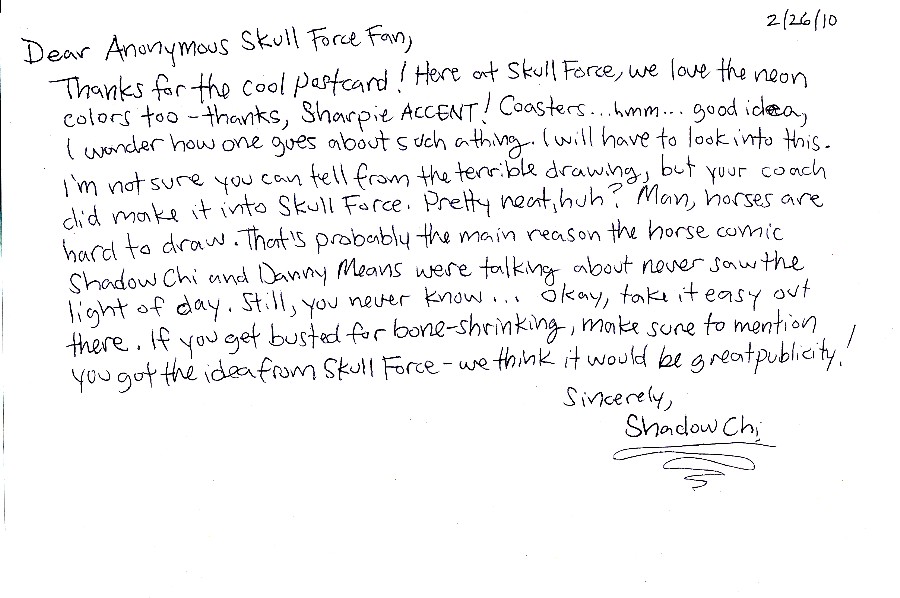 2/26/10
Dear Anonymous Skull Force Fan,
Thanks for the cool postcard! Here at Skull Force, we love the neon
colors too - thanks, Sharpie ACCENT! Coasters... hmm... good idea,
I wonder how one goes about such a thing. I will have to look into this.
I'm not sure you can tell from the terrible drawing, but your coach
did make it into Skull Force. Pretty neat, huh? Man, horses are
hard to draw. That's probably the main reason the horse comic
Shadow Chi and Danny Means were talking about never saw the
light of day. Still, you never know... Okay, take it easy out
there. If you get busted for bone-shrinking, make sure to mention
you got the idea from Skull Force - we think it would be great publicity!
Sincerely,
Shadow Chi